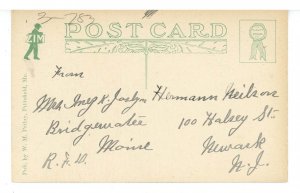 2 753
ZIM
POST CARD
From
Mrs. Inez K. Joslyn
Bridgewater
Maine
R.F.D.
Hermann Neilson
100 Halsey St.
Newark
N.J.
Pub. by W. M. Prilay, Pittsfield, Me.